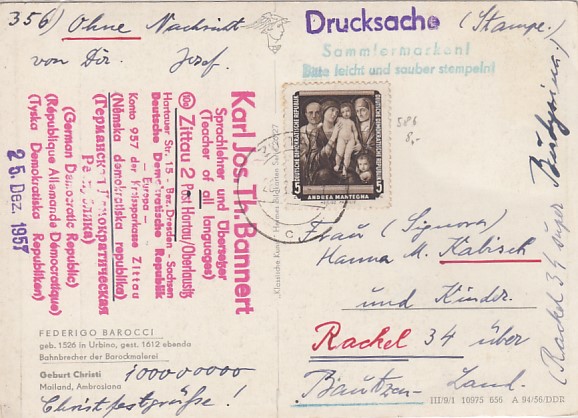 356) Ohne Nachricht
von Dir, Josef.
Drucksache (Stempel.)
Sammlermarken!
Bitte leicht und sauber stempeln!
Karl Jos. Th. Bannert
Sprachlehrer und Übersetzer
(Teacher of all languages)
(10a) Zittau 2 Post Hartau/Oberlausitz
Hartauer Str. 15 - Bez. Dresden - Sachsen
Deutsche Demokratische Republik
- Europa -
Konto 957 der Kreissparkasse Zittau
(Německa demokratiska republika)
(Германская Демократическая
Республика)
(German Democratic Republic)
(Republique Allemande Democratique)
(Tyska Demokratiska Republiken)
25. Dez. 1957
DEUTSCHE DEMOKRATISCHE REPUBLIK
5 5
ANDREA MANTEGNA
586
8,-
Frau (Signora)
Hanna M. Kabisch
und Kinder.
Rackel 34 über
Bautzen-Land.
(Rackel 34 super Budyšin.)
FEDERIGO BAROCCI
geb. 1526 in Urbino, gest. 1612 ebenda
Bahnbrecher der Barockmalerei
Geburt Christi
Mailand, Ambrosiana
1000000000
Christfestgrüße!
III/9/1 10975 656 A 94/56/DDR